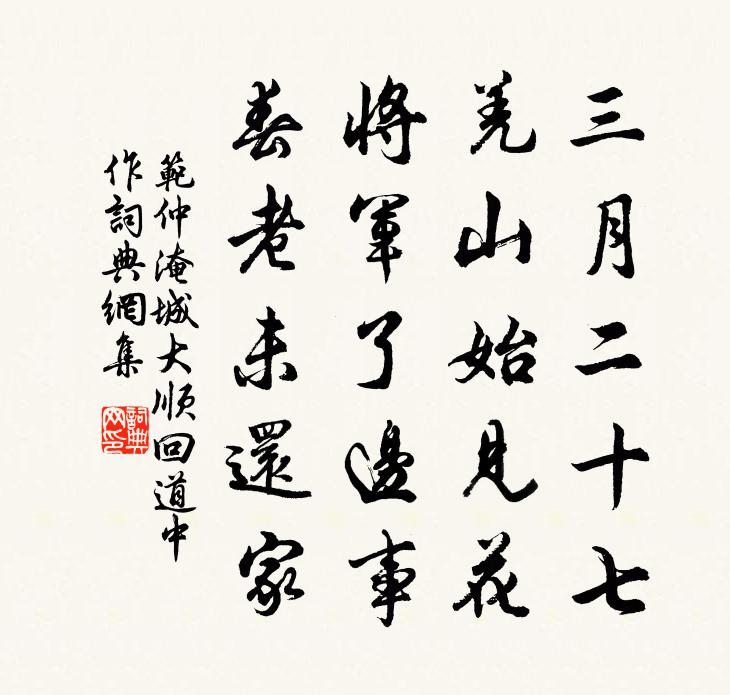 三月二十七
羌山始見花
將軍了邊事
春老未還家
範仲淹城大順回道中
作詞典網集
詞典
网印